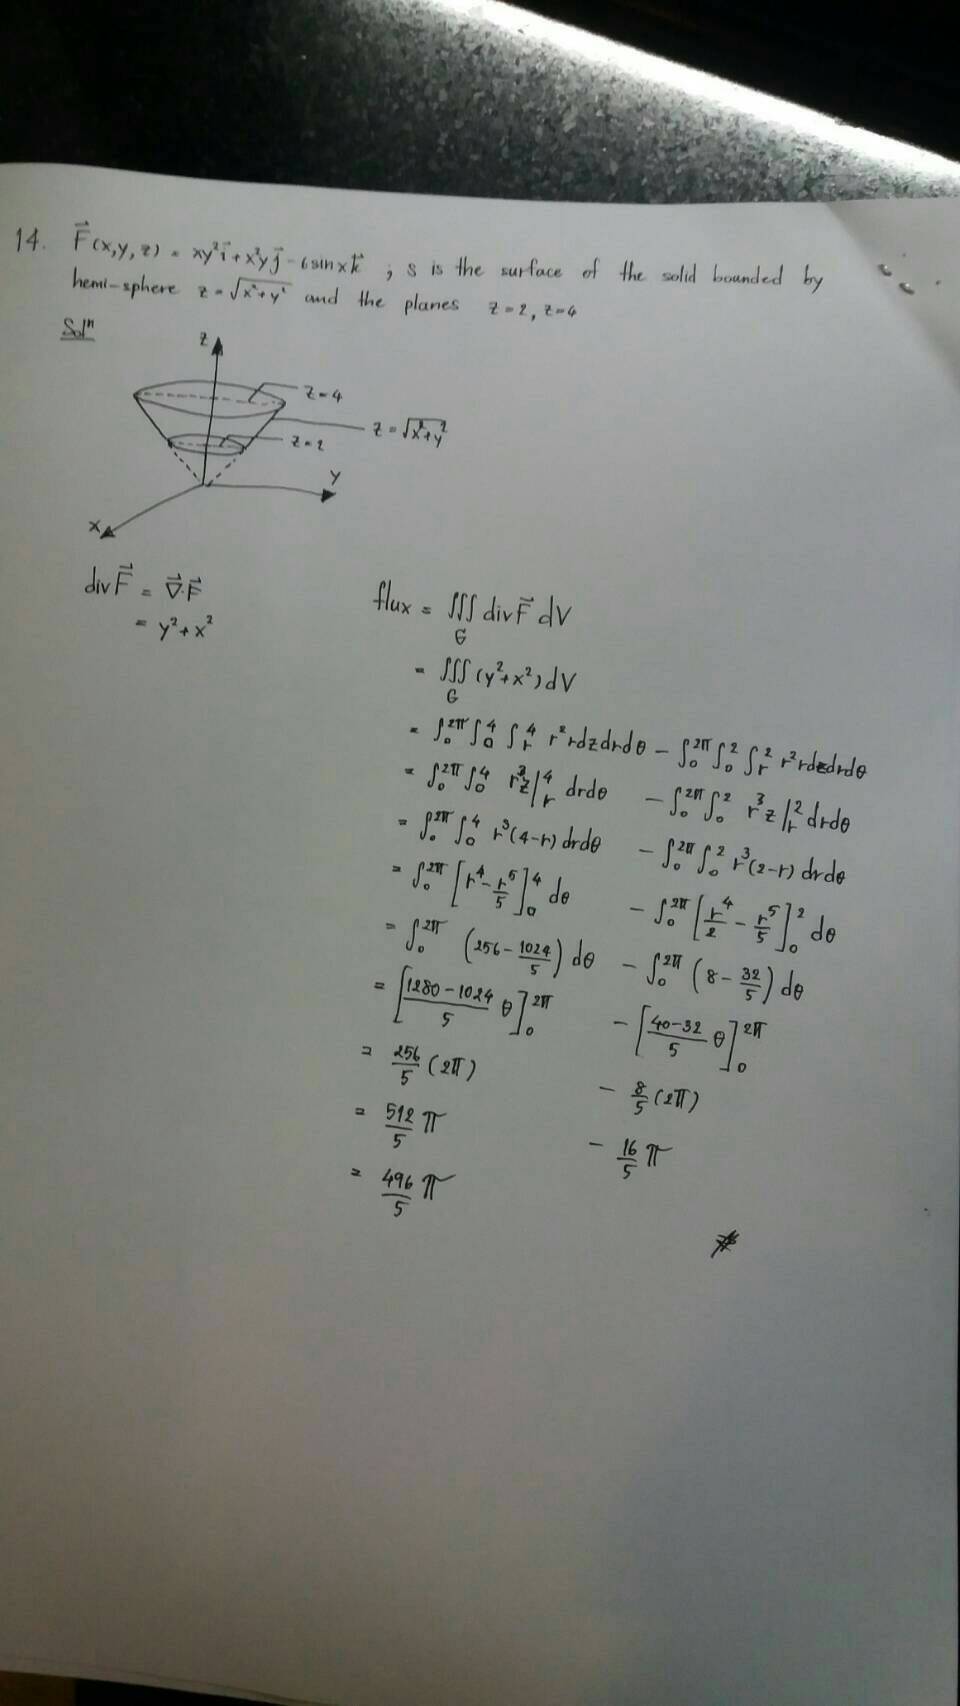 14. F⃗(x,y,z) = xy²i⃗ + x²yj⃗ - 6sinxk⃗ ; s is the surface of the solid bounded by
hemi-sphere z = √(x²+y²) and the planes z=2, z=4
Solⁿ
z
z=4
z = √(x²+y²)
z=2
y
x
divF⃗ = ∇⃗·F⃗
= y²+x²
flux = ∭_G divF⃗ dV
= ∭_G (y²+x²) dV
= ∫₀^2π ∫₀^4 ∫_r^4 r² r dz dr dθ - ∫₀^2π ∫₀^2 ∫_r^2 r² r dz dr dθ
= ∫₀^2π ∫₀^4 r³z|_r^4 dr dθ - ∫₀^2π ∫₀^2 r³z|_r^2 dr dθ
= ∫₀^2π ∫₀^4 r³(4-r) dr dθ - ∫₀^2π ∫₀^2 r³(2-r) dr dθ
= ∫₀^2π [r⁴ - r⁵/5]₀^4 dθ - ∫₀^2π [r⁴/2 - r⁵/5]₀^2 dθ
= ∫₀^2π (256 - 1024/5) dθ - ∫₀^2π (8 - 32/5) dθ
= [(1280-1024)/5 θ]₀^2π - [(40-32)/5 θ]₀^2π
= 256/5 (2π) - 8/5 (2π)
= 512/5 π - 16/5 π
= 496/5 π
#